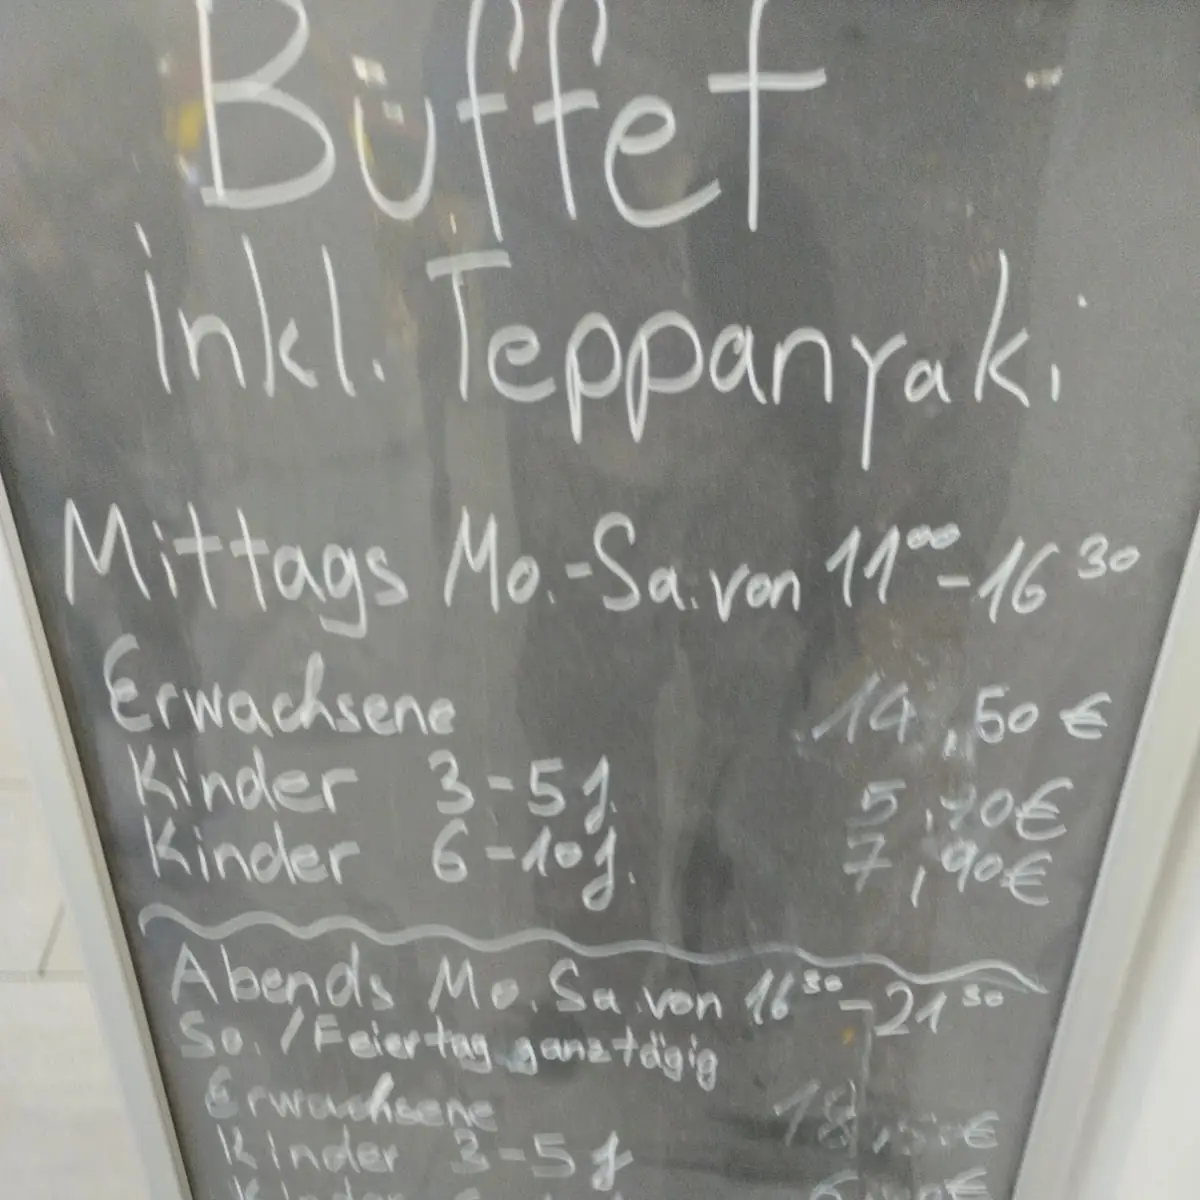 Büffet
inkl. Teppanyaki
Mittags Mo.-Sa. von 11⁰⁰-16³⁰
Erwachsene 14,50 €
Kinder 3-5 J. 5,90€
Kinder 6-10 J. 7,90€
Abends Mo. Sa. von 16³⁰-21³⁰
So. / Feiertag ganztägig
Erwachsene 18,50€
Kinder 3-5 J
Kinder